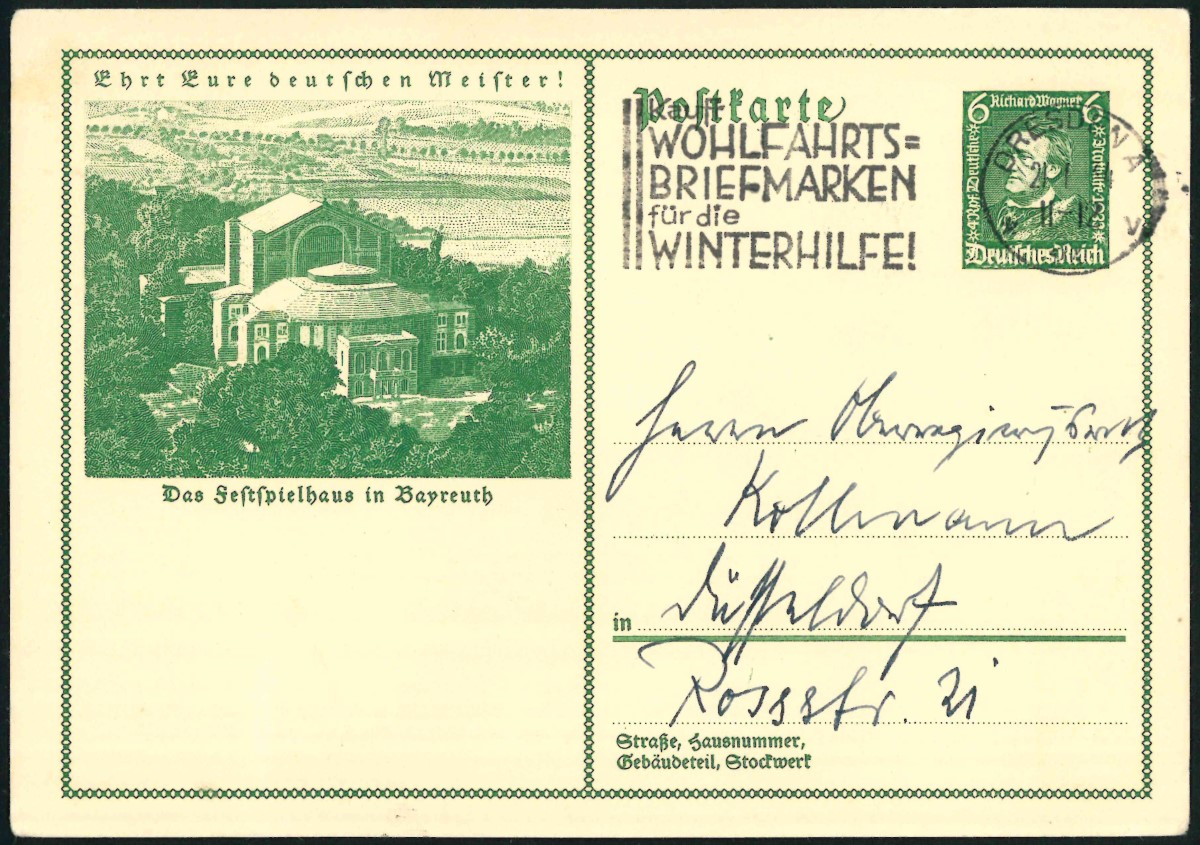 Ehrt Eure deutschen Meister!
Das Festspielhaus in Bayreuth
Postkarte
Kauft
WOHLFAHRTS=
BRIEFMARKEN
für die
WINTERHILFE!
6 Richard Wagner 6
Deutsches Reich
DRESDEN A
11-12 V
Herrn Oberregierungsrat
Kollmann
in Düsseldorf
Rossstr. 21
Straße, Hausnummer,
Gebäudeteil, Stockwerk